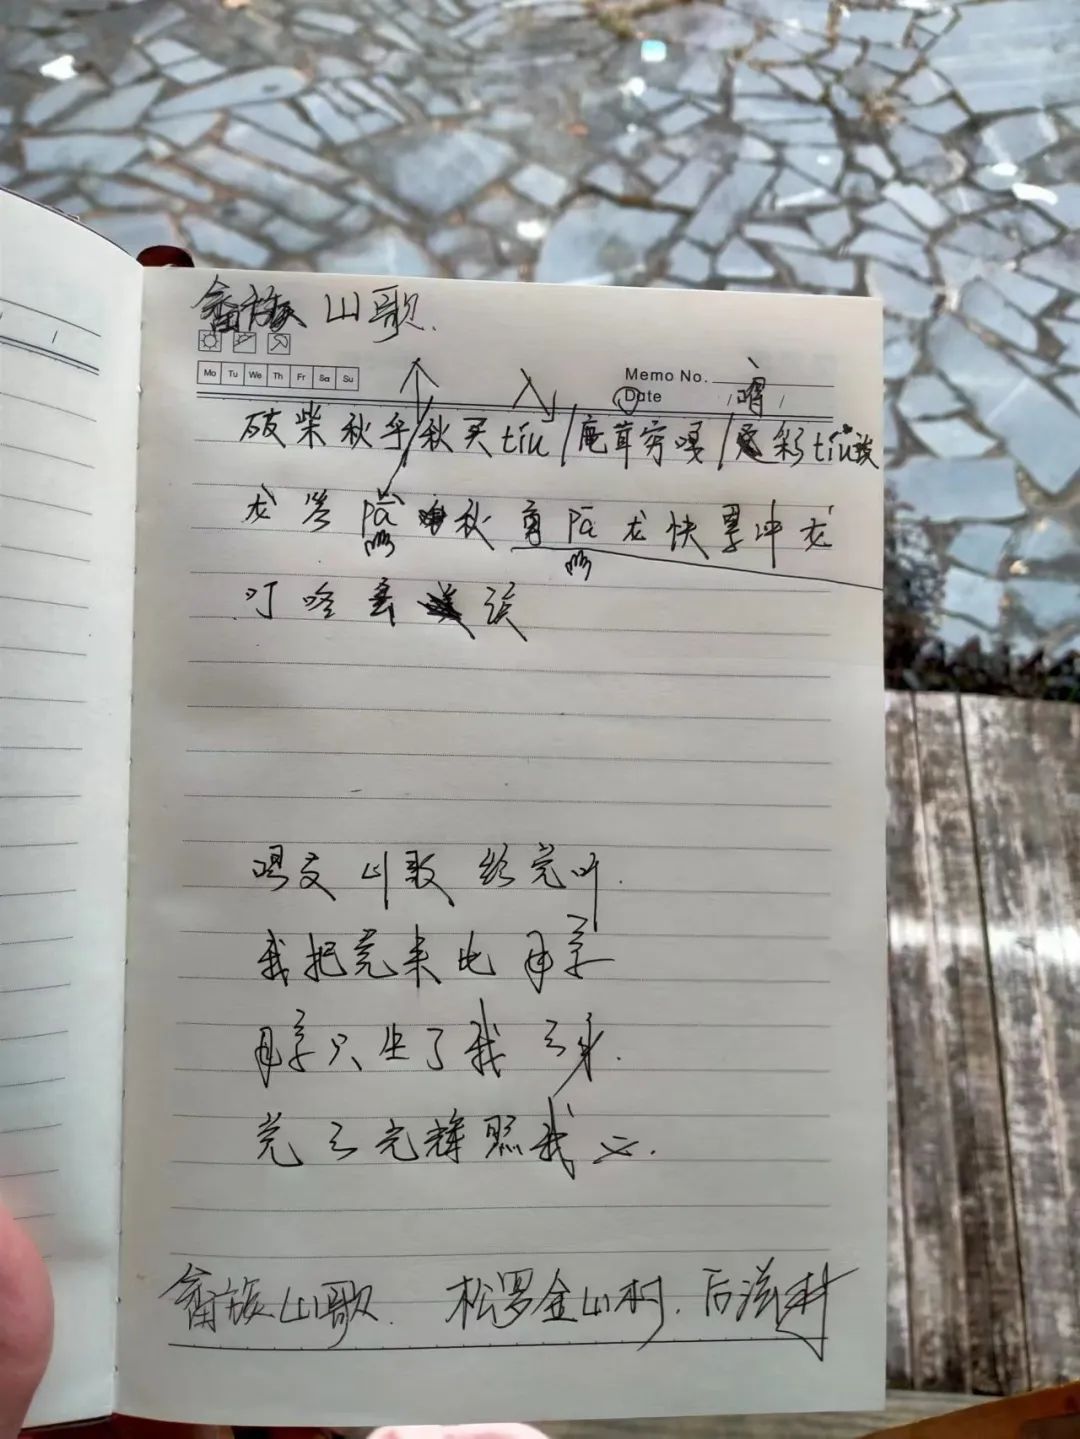 畲族 山歌.
Mo Tu We Th Fr Sa Su
Memo No.
Date / /
破柴秋乎/秋买tiu/庵茸穷嘎/彩tiu诶
龙 pā 秋 pā 龙快罩冲龙
叮咚 诶
唱支山歌给党听.
我把党来比母亲
母亲只生了我之身.
党之光辉照我心.
畲族山歌. 松罗金山村. 后溢村